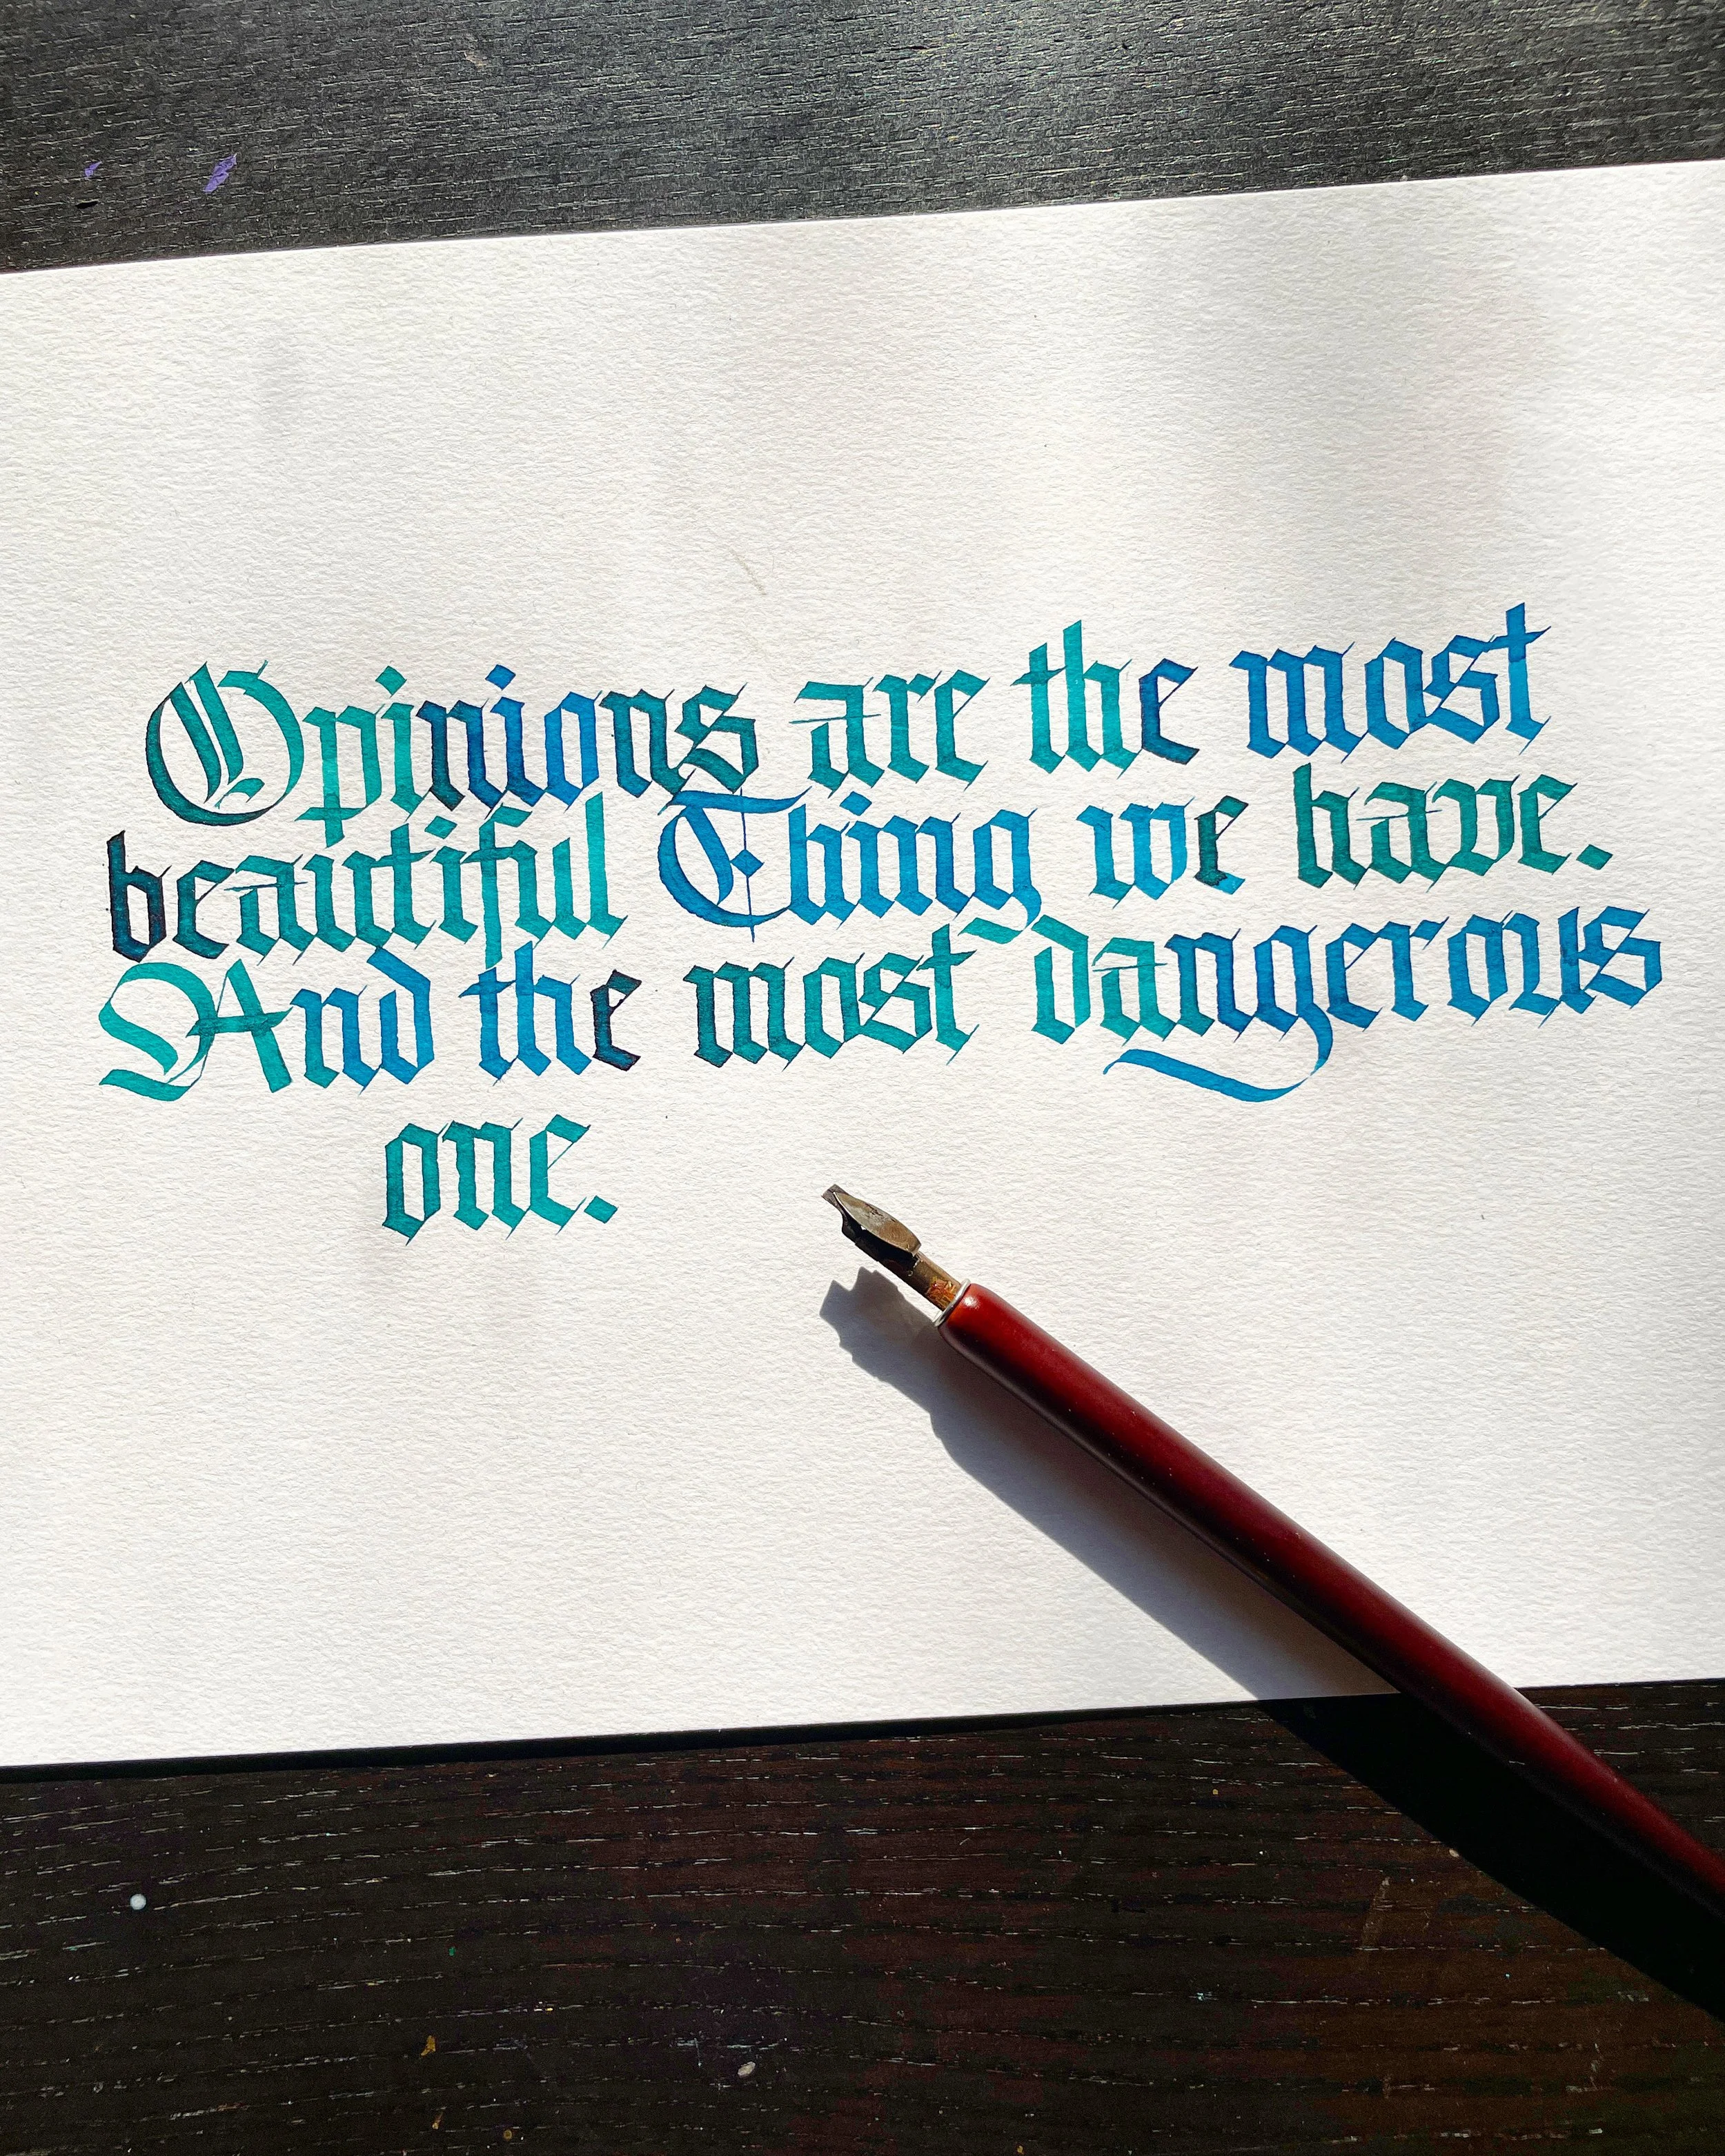 Opinions are the most
beautiful Thing we have.
And the most dangerous
one.